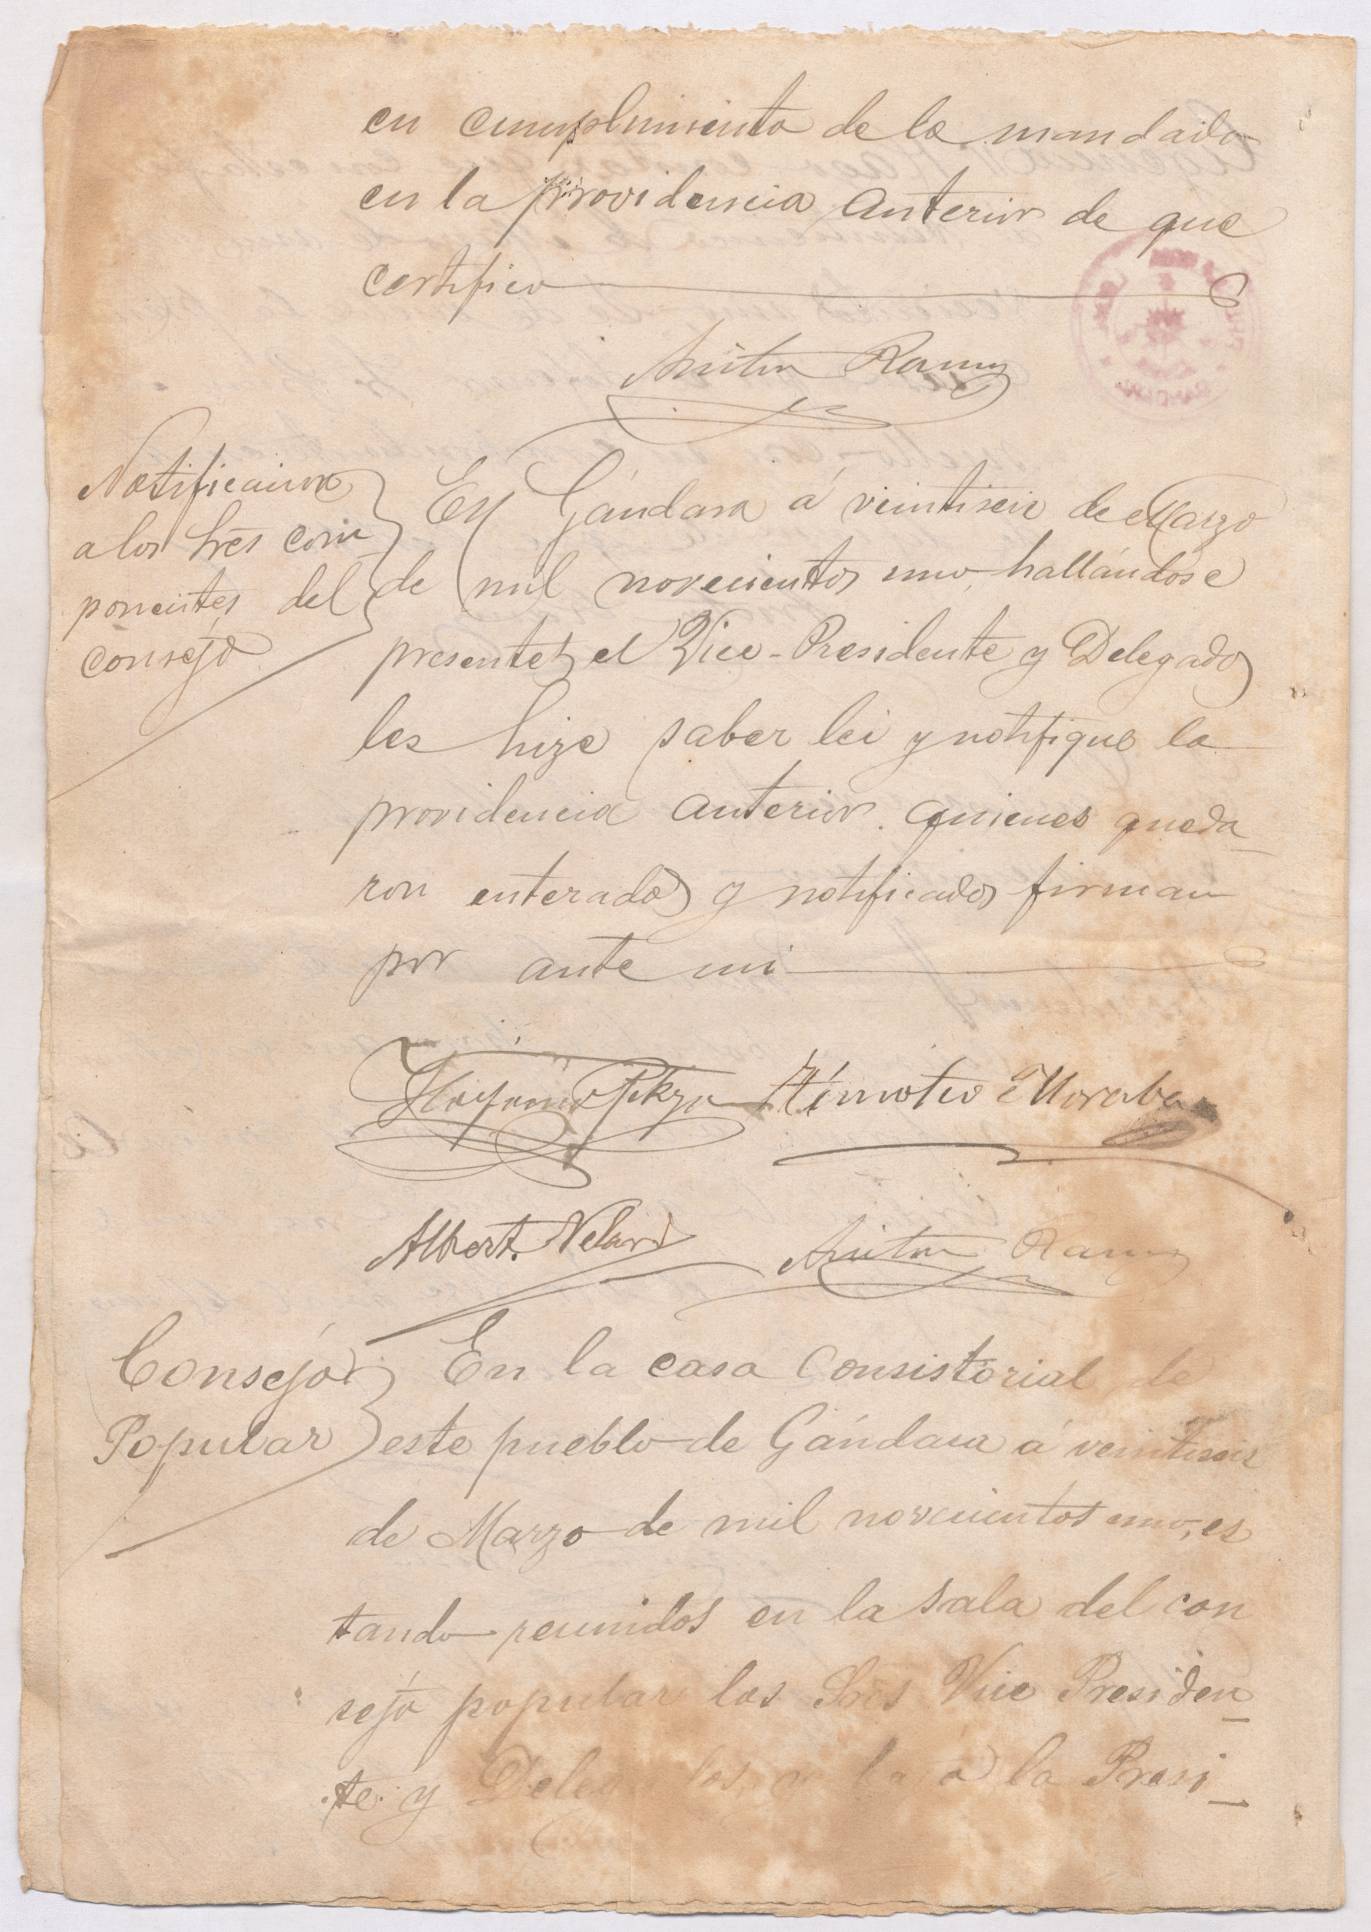 en cumplimiento de lo mandado
en la providencia anterior de que
certifico
Notificaicon
a los tres com
ponentes del
consejo
En Gándara á veintiseis de Marzo
de mil novecientos uno, hallándose
presentes el Vice-Presidente y Delegados
les hize saber lei y notifique la
providencia anterior. quienes queda_
ron enterados y notificados firman
por ante mi
Timoteo
Albert.
Consejo
Popular
En la casa Consistorial de
este pueblo de Gándara á veintiseis
de Marzo de mil novecientos uno, es
tando reunidos en la sala del con
sejo popular los Sres Vice Presiden_
te. y la Presi_